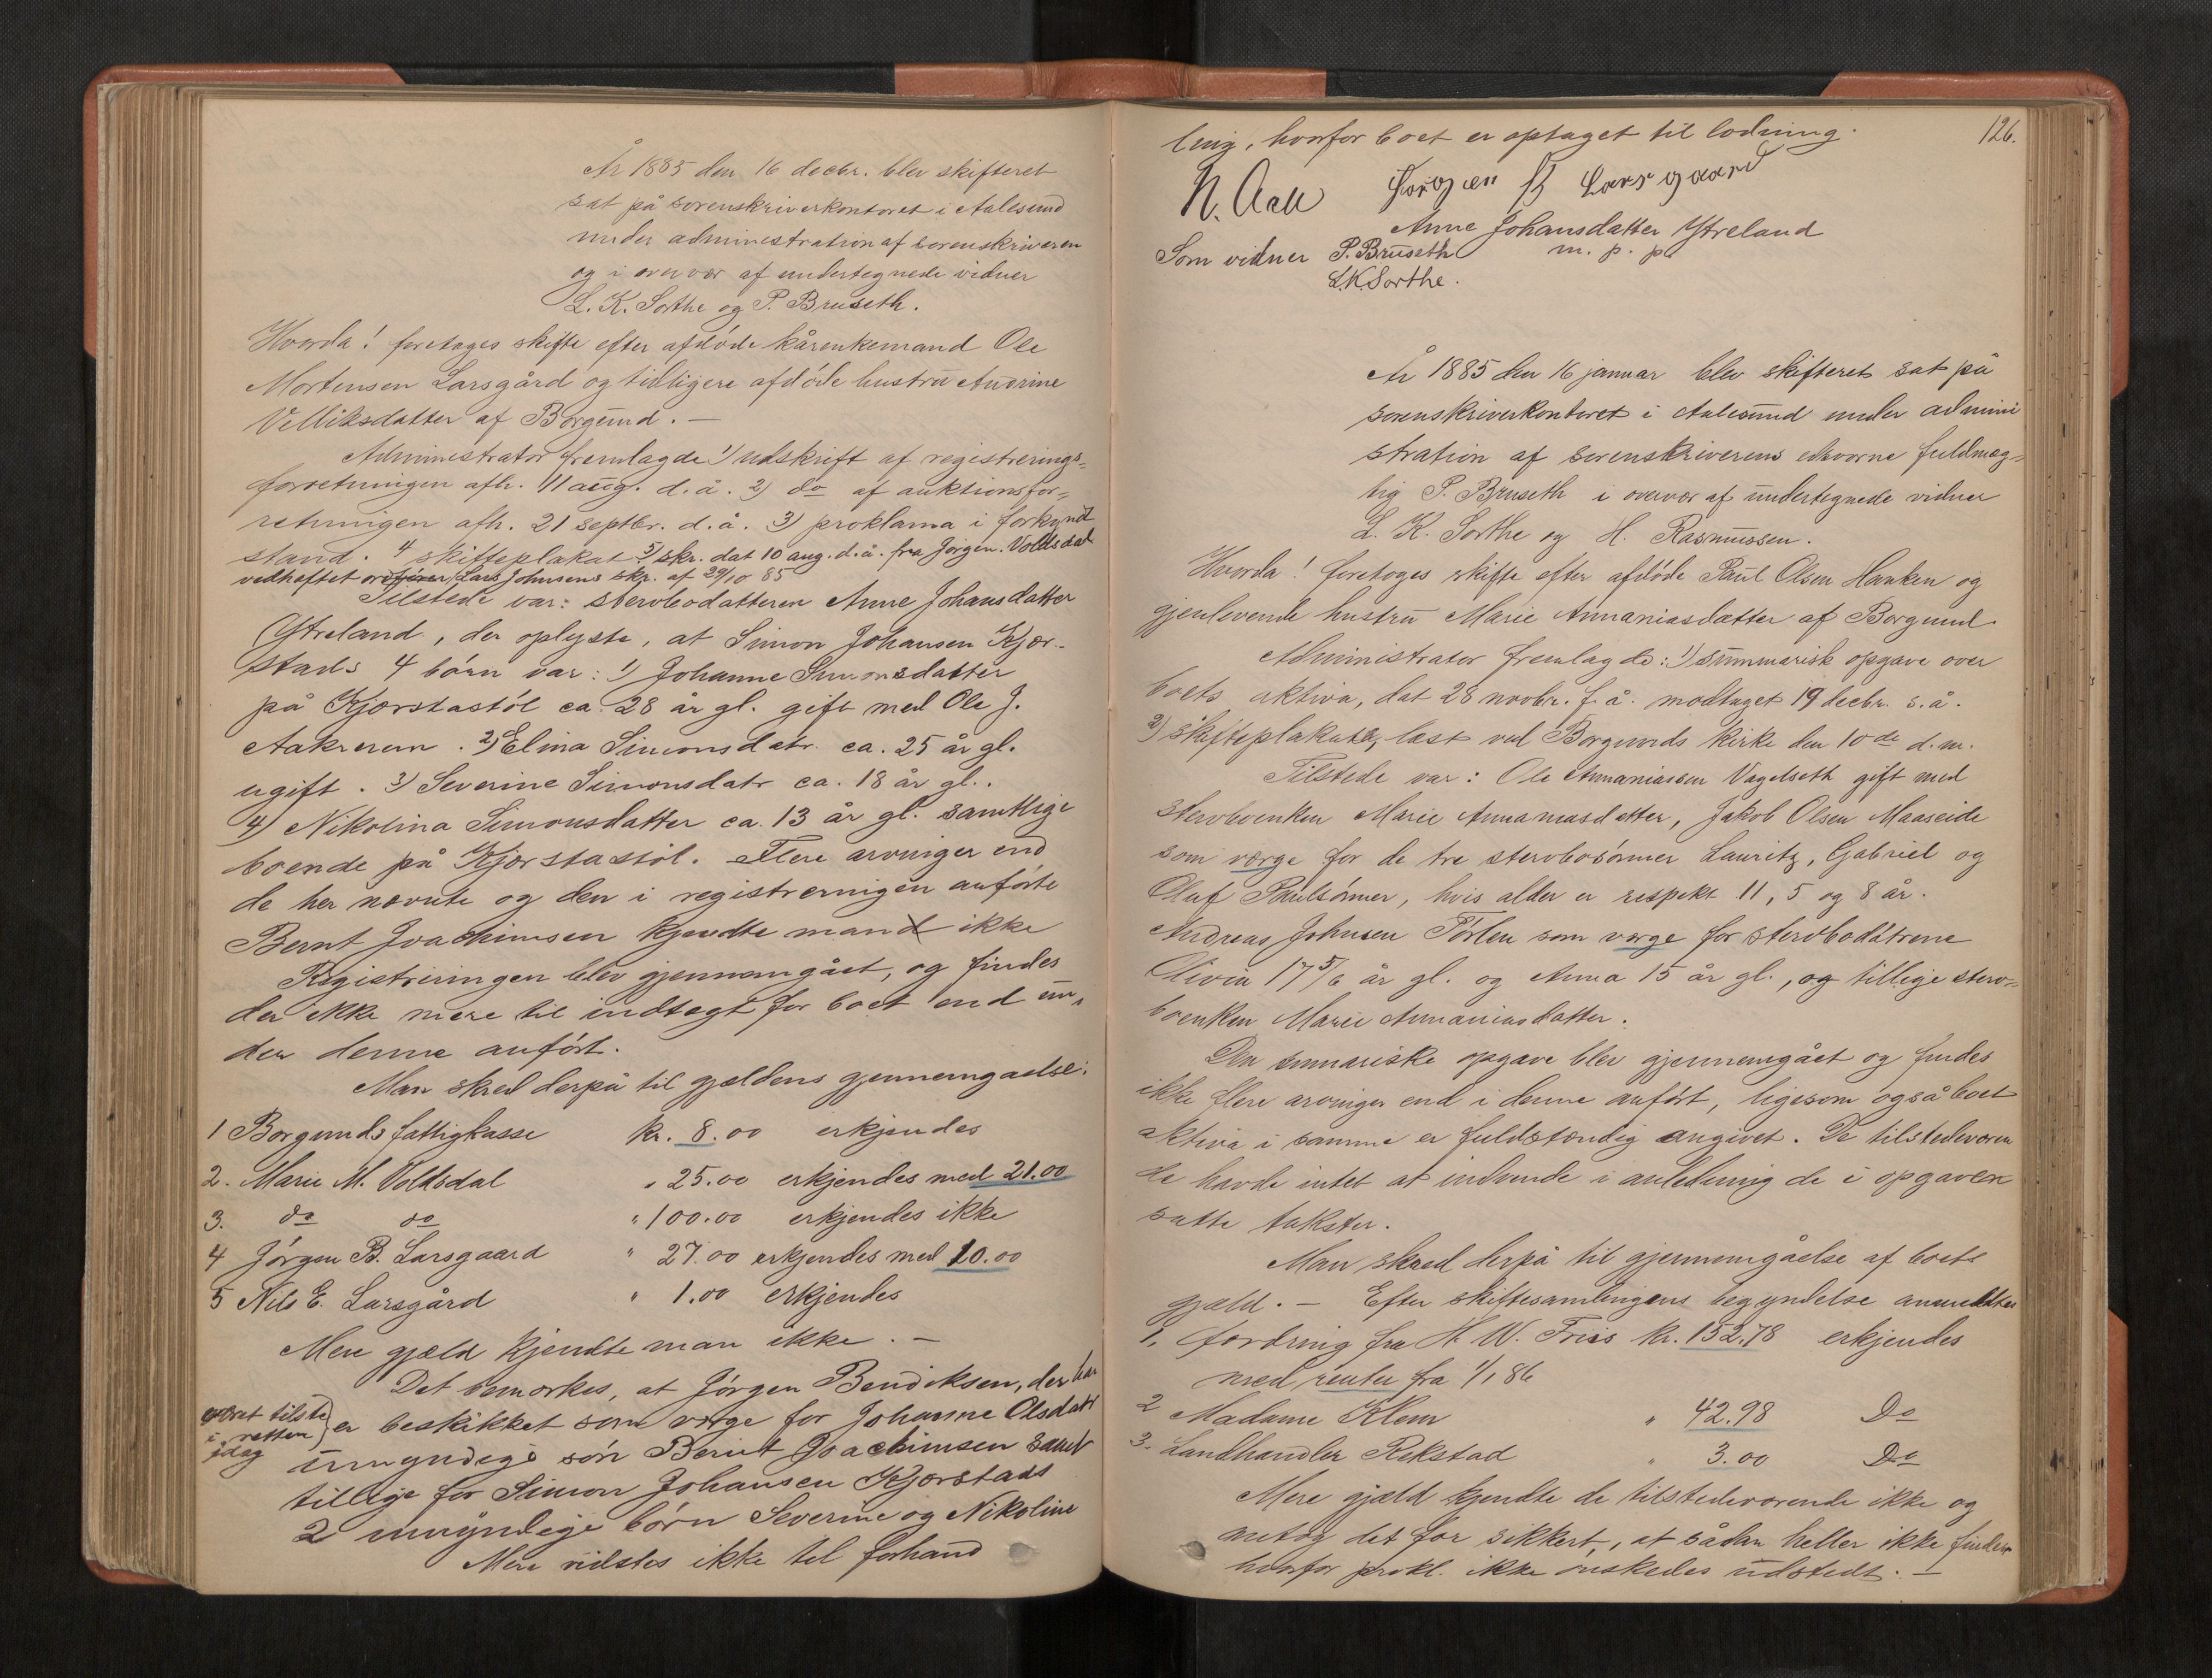 År 1885 den 16 decbr. blev skifteret
sat på sorenskriverkontoret i Aalesund
under administration af sorenskriveren
og i overvær af undertegnede vidner
L. K. Sorthe og P. Bruseth.
Hvorda! foretoges skifte efter afdøde kårenkemand Ole
Mortensen Larsgård og tidligere afdøde hustru Andrine
Velliksdatter af Borgund. —
Administrator fremlagde 1) udskrift af registrerings=
forretningen afh. 11 aug. d. å. 2) do af auktionsfor=
retningen afh. 21 septbr. d. å. 3) proklama i forkyndt
stand. 4 skifteplakat 5) skr. dat 10 aug. d. å. fra Jørgen Voldsdal
vedheftet Lars Johnsens skr. af 29/10 85
Tilstede var: stervbodatteren Anne Johansdatter
Ytreland, der oplyste, at Simon Johansen Kjær-
stads 4 børn var: 1) Johanne Simonsdatter
på Kjærstastøl ca 28 år gl. gift med Ole J.
Aakrerem. 2) Elina Simonsdatr. ca. 25 år gl.
ugift. 3) Severine Simonsdatr ca. 18 år gl..
4) Nikolina Simonsdatter ca. 13 år gl. samtlige
boende på Kjærstastøl. Flere arvinger end
de her nævnte og den i registreringen anførte
Bernt Joachimsen kjendte man ikke
Registreringen blev gjennemgået, og findes
der ikke mere til indtægt for boet end un=
der denne anført.
Man skred derpå til gjældens gjennemgaaelse:
1 Borgunds fattigkasse kr. 8.00 erkjendes
2. Marie M. Voldsdal " 25.00 erkjendes med 21.00
3. do do " 100.00 erkjendes ikke
4 Jørgen B. Larsgaard " 27.00 erkjendes med 10.00
5 Nils E. Larsgård " 1.00 erkjendes
Mere gjæld kjendte man ikke. —
Det bemærkes, at Jørgen Bendiksen, der har
været tilste
i retten
idag
er beskikket som værge for Johanne Olsdatr
umyndige søn Bernt Joachimsen samt
tillige for Simon Johansen Kjærstads
2 umyndige børn Severine og Nikoline
Mere vidstes ikke til forhand
126.
ling, hvorfor boet er optaget til lodning.
N. Aall Jørgen B Larsgaard
Anne Johansdatter Ytreland
m. p. p.
Som vidner P. Bruseth
L.K. Sorthe.
År 1885 den 16 januar blev skifteret sat på
sorenskriverkontoret i Aalesund under admini
stration af sorenskriverens edsvorne fuldmæg=
tig P. Bruseth i overvær af undertegnede vidner
L. K. Sorthe og H. Rasmussen.
Hvorda! foretoges skifte efter afdøde Paul Olsen Hanken og
gjenlevende hustru Marie Annaniasdatter af Borgund.
Administrator fremlagde: 1) summarisk opgave over
boets aktiva, dat 28 novbr. f. å. modtaget 19 decbr. s. å.
2) skifteplakat, læst ved Borgunds kirke den 10de d. m.
Tilstede var: Ole Annaniassen Vagelseth gift med
stervboenken Marie Annaniasdatter, Jakob Olsen Maaseide
som værge for de tre stervbosønner Lauritz, Gabriel og
Oluf Paulsønner, hvis alder er respekt 11, 5 og 8 år.
Andreas Johnsen Törlen som værge for stervbodøtrene
Olivia 17 5/6 år gl. og Anna 15 år gl., og tillige sterv=
boenken Marie Annaniasdatter.
Den summariske opgave blev gjennemgået og findes
ikke flere arvinger end i denne anført, ligesom også boet
aktiva i samme er fuldstændig angivet. De tilstedeværen
de havde intet at indvende i anledning de i opgaven
satte takster.
Man skred derpå til gjennemgåelse af boets
gjæld. — Efter skiftesamlingens begyndelse anmeldtes
1, fordring fra H. W. Friis kr. 152.78 erkjendes
med renter fra 1/1 86
2 Madame Klem " 42.98 Do
3. Landhandler Rekstad " 3.00 Do
Mere gjæld kjendte de tilstedeværende ikke og
antog det for sikkert, at sådan heller ikke findes
hvorfor prokl. ikke ønskedes udstedt. —